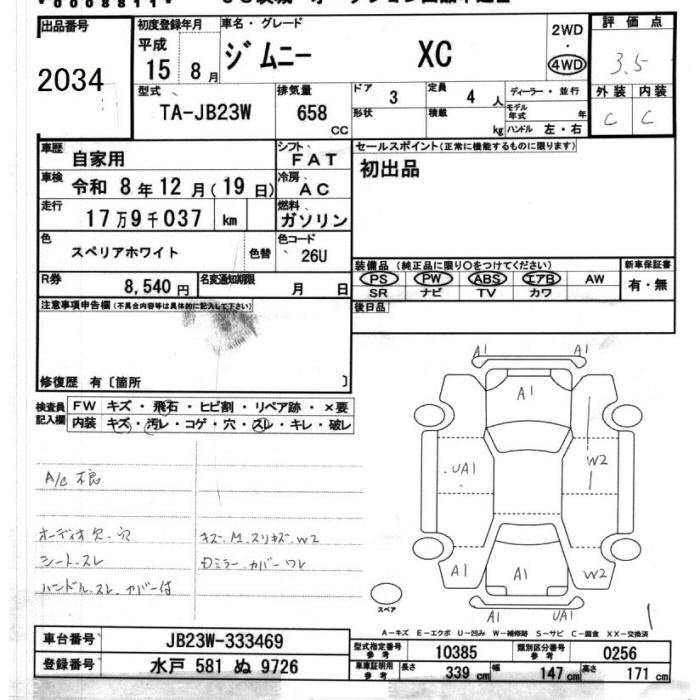 出品番号
2034
初度登録年月
平成
15年 8月
車名・グレード
ジムニー XC
2WD
・
4WD
評価点
3.5
型式
TA-JB23W
排気量
658
CC
ドア 3
定員 4人
形状
積載 kg
ディーラー・並行
モデル年式 年
ハンドル 左・右
外装 内装
C C
車歴 自家用
シフト FAT
セールスポイント(正常に機能するものに限ります)
初出品
車検 令和 8年12月(19日)
冷房 AC
走行 17万9千037 km
燃料 ガソリン
色 スペリアホワイト 色替
色コード 26U
装備品(純正品に限り○をつけてください)
新車保証書
PS PW ABS エアB AW
SR ナビ TV カワ
有・無
R券 8,540円
名変通知期限 月 日
注意事項申告欄(不具合内容等は具体的に記入して下さい)
後日品
修復歴 有〔箇所 〕
検査員記入欄
FW キズ・飛石・ヒビ割・リペア跡・×要
内装 キズ・汚レ・コゲ・穴・スレ・キレ・破レ
A/C 不良
オーディオ欠.穴
シート.スレ
ハンドル.スレ.カバー付
キズ.M.スリキズ.W2
カバー ワレ
A1 A1
A1
UA1
W2
A1 A1 W2
A1 UA1
スペア
A-キズ E-エクボ U-凹み W-補修跡 S-サビ C-腐食 XX-交換済
車台番号 JB23W-333469
登録番号 水戸 581 ぬ 9726
型式指定番号 参考 10385
類別区分番号 参考 0256
車庫証明用 参考 長さ 339 cm 幅 147 cm 高さ 171 cm